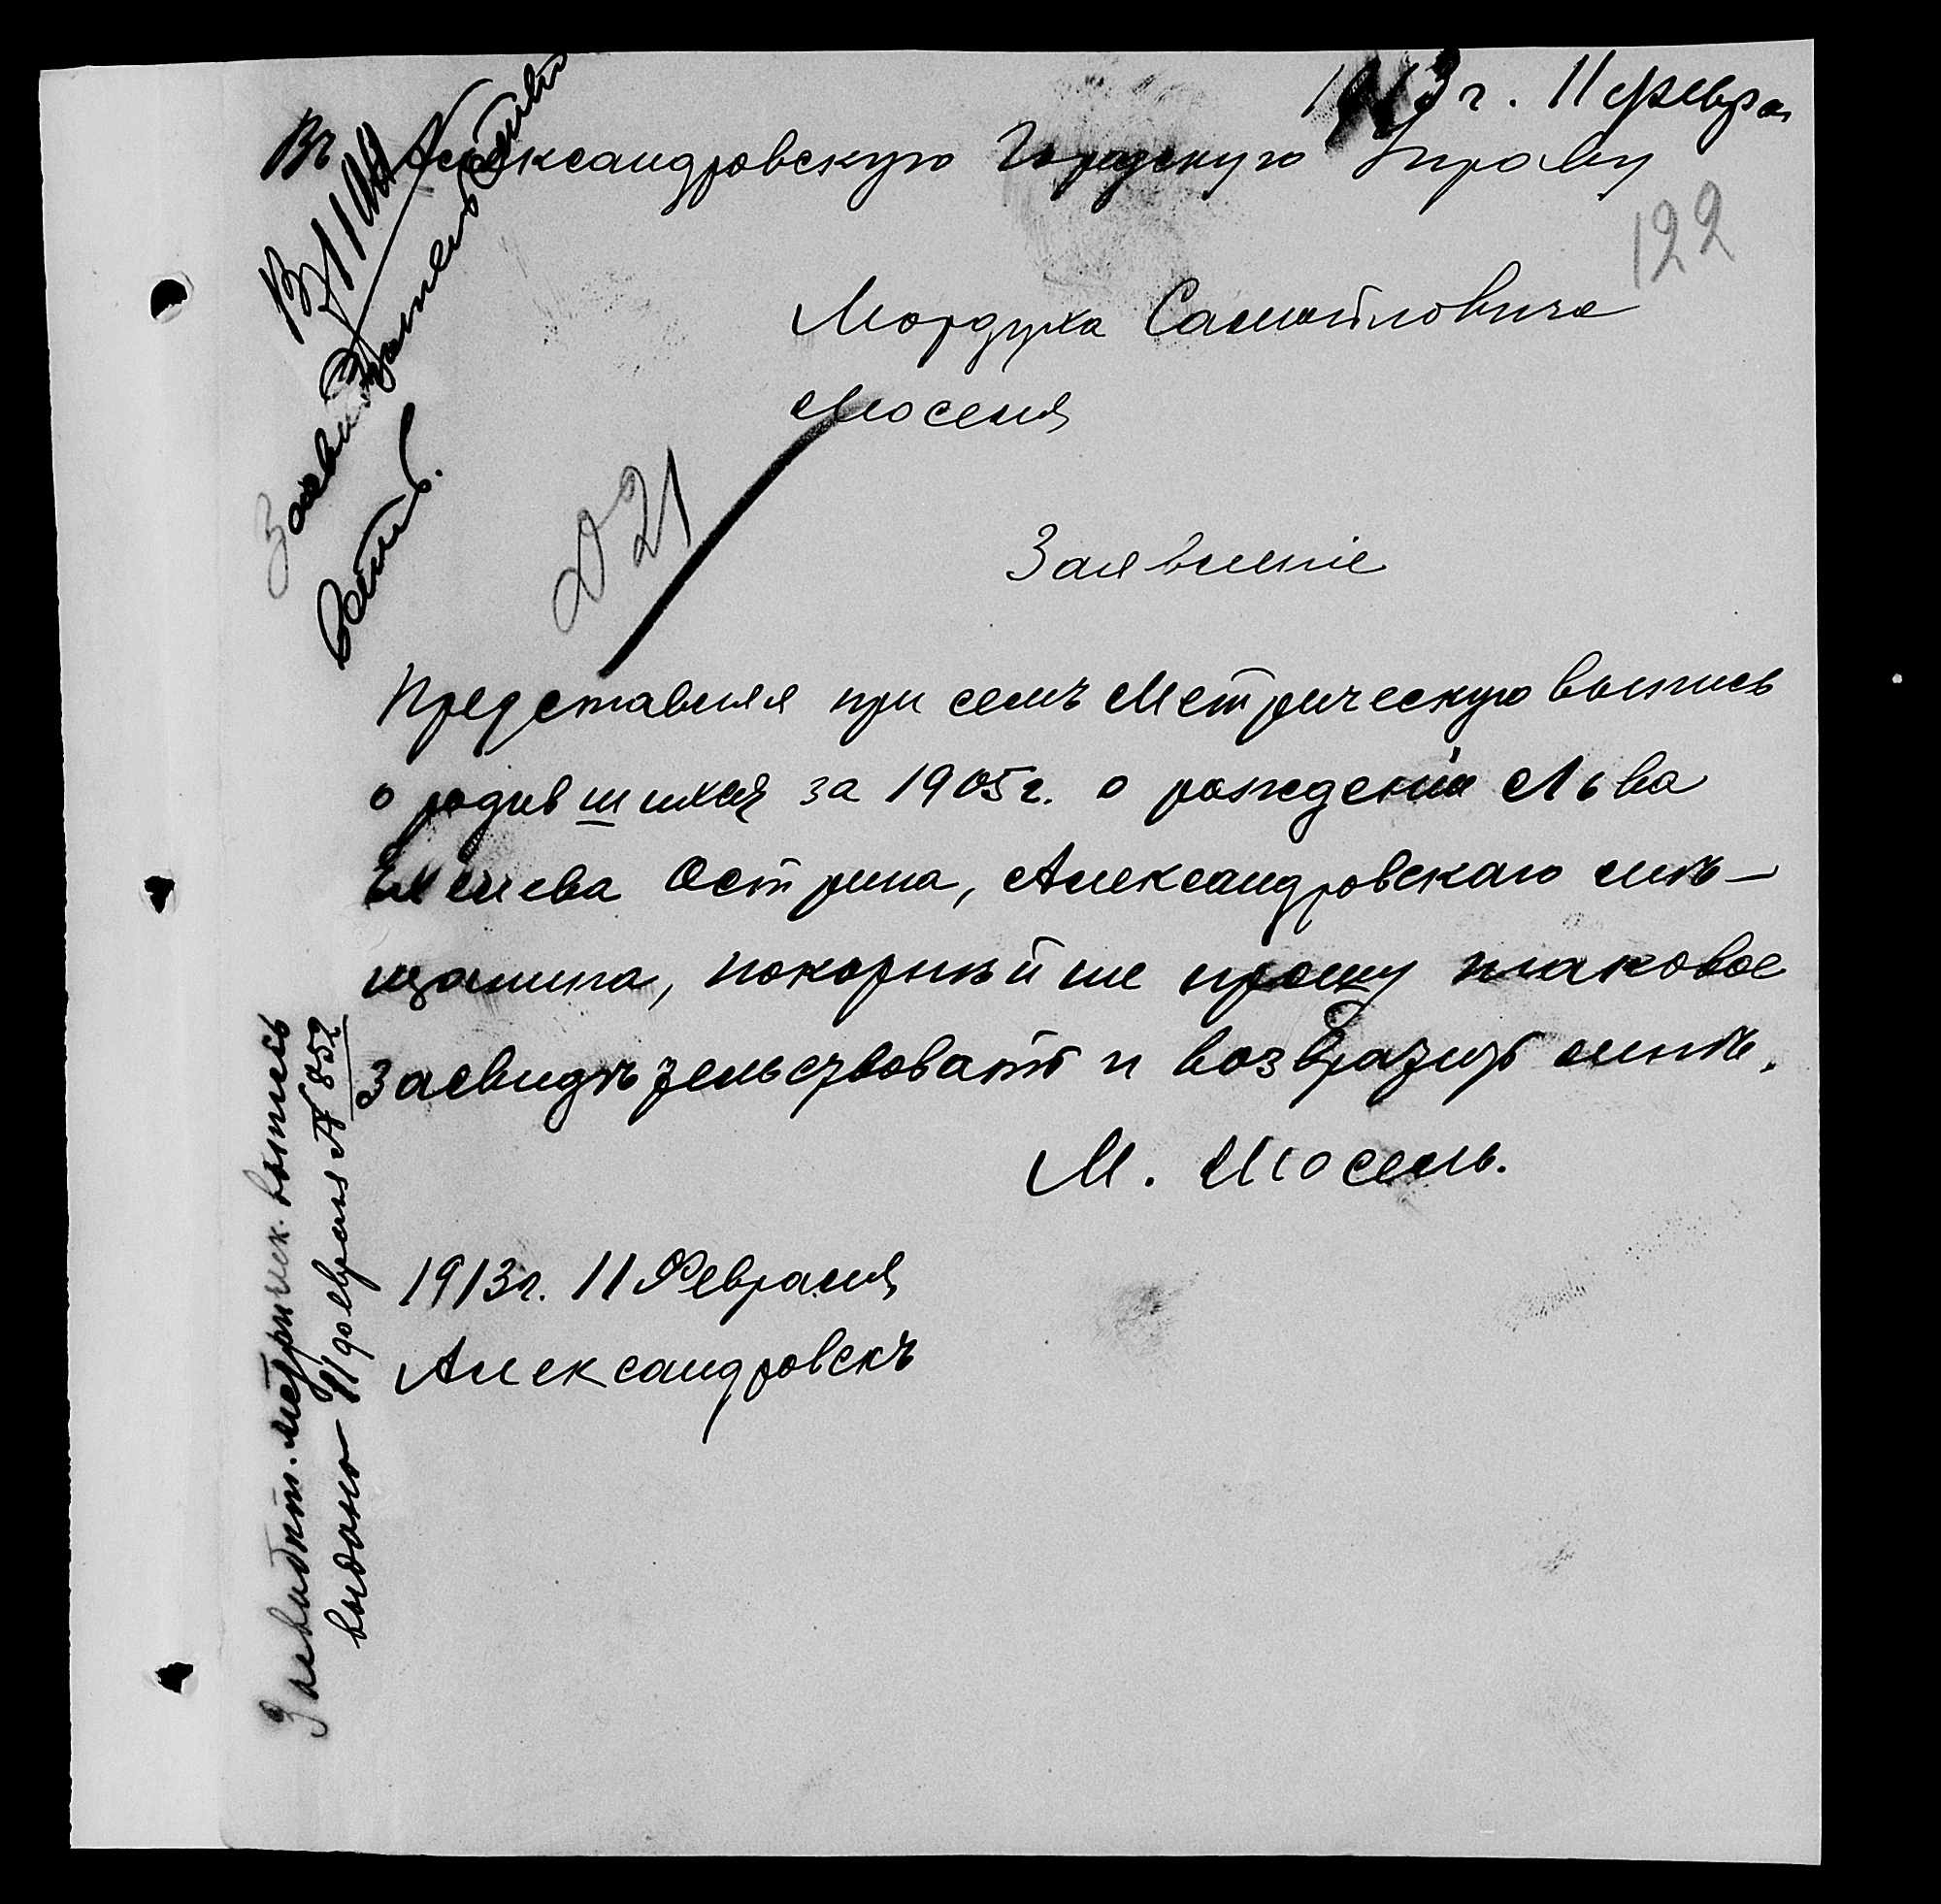 1913 г. 11 февра
Въ Александровскую Городскую Управу
122
Мордуха Самойловича
Моселя
21
Заявленіе
Представляя при семъ Метрическую выпись
о родившихся за 1905 г. о рожденіи Льва
Острина, Александровскаго мѣ-
щанина, покорнѣйше прошу таковое
Засвидѣтельствовать и возвратить мнѣ.
М. Мосель.
1913 г. 11 Февраля
Александровскъ
Засвидѣтельство
вать.
Засвидѣт. метрическ. выпись
выдана 11 февраля № 852